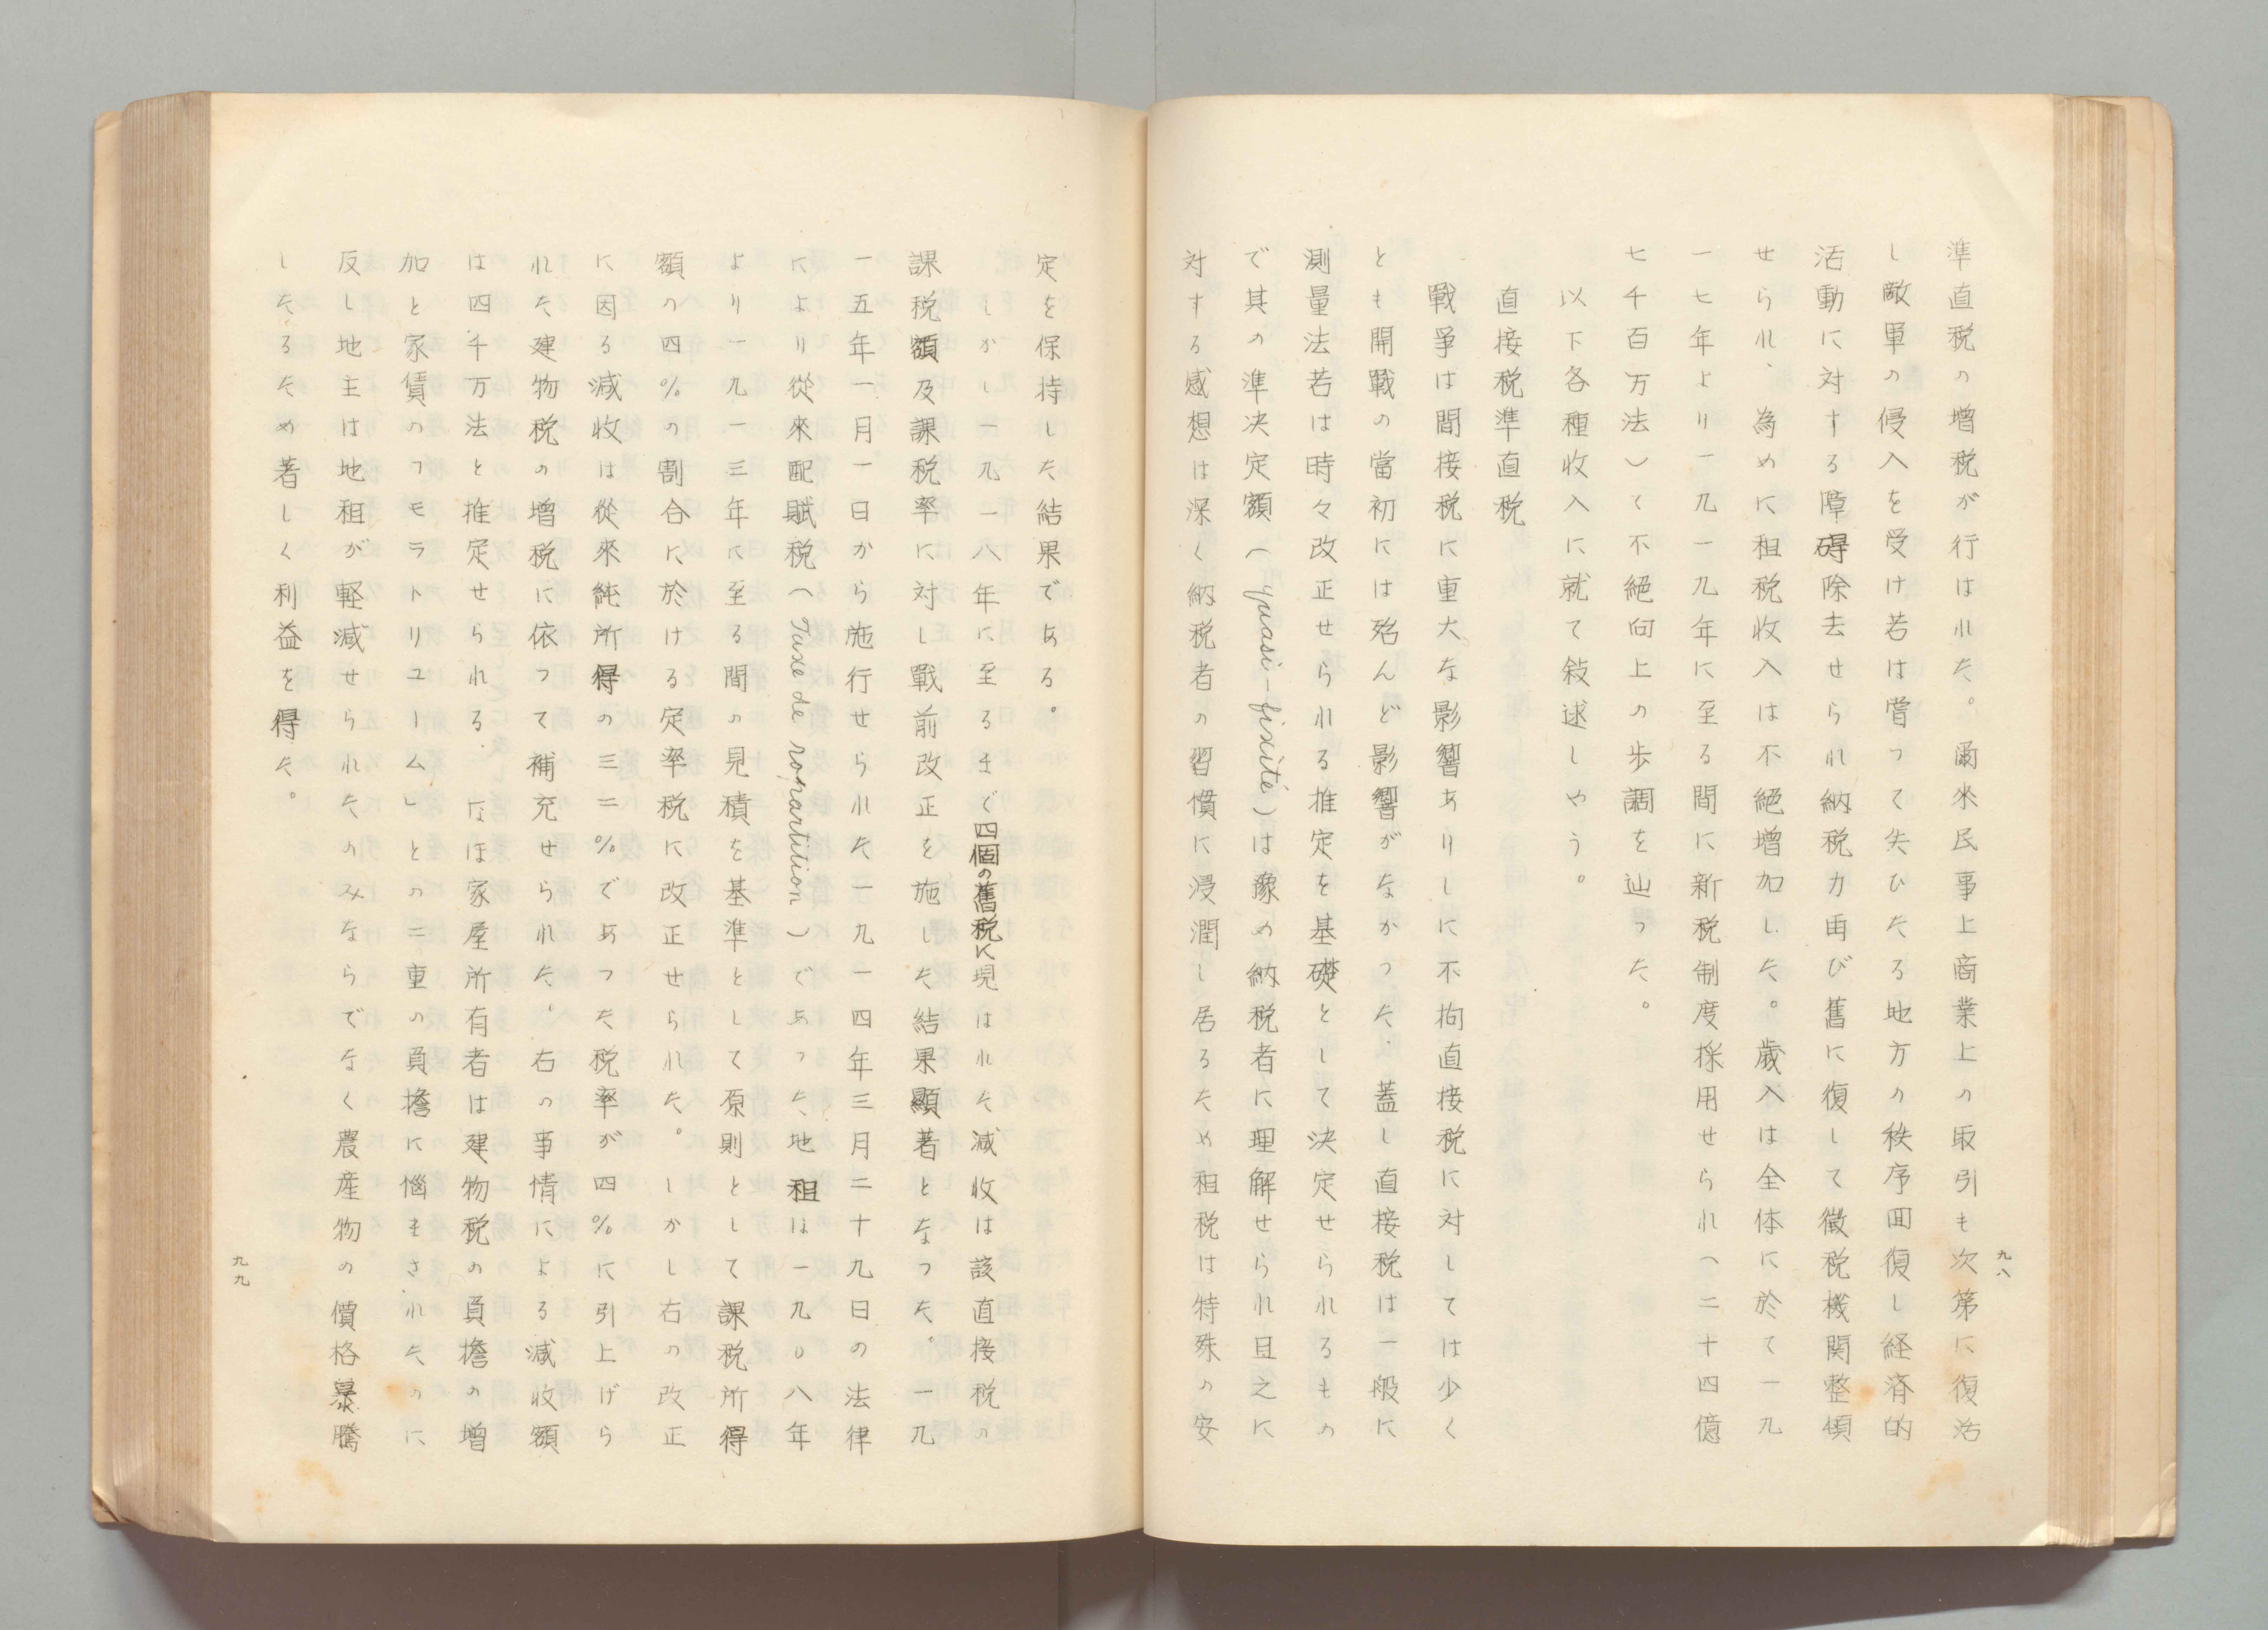 九八
準直税の増税が行はれた。爾来民事上商業上の取引も次第に復活
し敵軍の侵入を受け若は嘗つて失ひたる地方の秩序回復し経済的
活動に対する障碍除去せられ納税力再び舊に復して徴税機関整頓
せられ、為めに租税收入は不絕増加した。歲入は全体に於て一九
一七年より一九一九年に至る間に新税制度採用せられ(二十四億
七千百万法)く不絕向上の歩調を辿つた。
以下各種收入に就て敍述しやう。
直接税準直税
戰爭は間接税に重大な影響ありしに不拘直接税に対しては少く
とも開戰の當初には殆んど影響がなかつた.蓋し直接税は一般に
測量法若は時々改正せられる推定を基礎として決定せられるもの
で其の準決定額(quasi-fixité)は豫め納税者に理解せられ且之に
対する感想は深く納税者の習慣に浸潤し居るため租税は特殊の安
定を保持した結果である。
しかし一九一八年に至るまで四個の舊税に現はれた減收は該直接税の
課税額及課税率に対し戰前改正を施した結果顯著となつた。一九
一五年一月一日から施行せられた一九一四年三月二十九日の法律
により從來配賦税(Taxe de ronartition)であつた、地租は一九〇八年
より一九一三年に至る間の見積を基準として原則として課税所得
額の四%の割合に於ける定率税に改正せられた。しかし右の改正
に因る減收は從來純所得の三二%であつた税率が四%に引上げら
れた建物税の増税に依つて補充せられた.右の事情による減收額
は四千万法と推定せられる.なほ家屋所有者は建物税の負擔の増
加と家賃の「モラトリユーム」との二重の負擔に惱まされたのに
反し地主は地租が軽減せられたのみならでなく農産物の價格暴騰
したるため著しく利益を得た。
九九